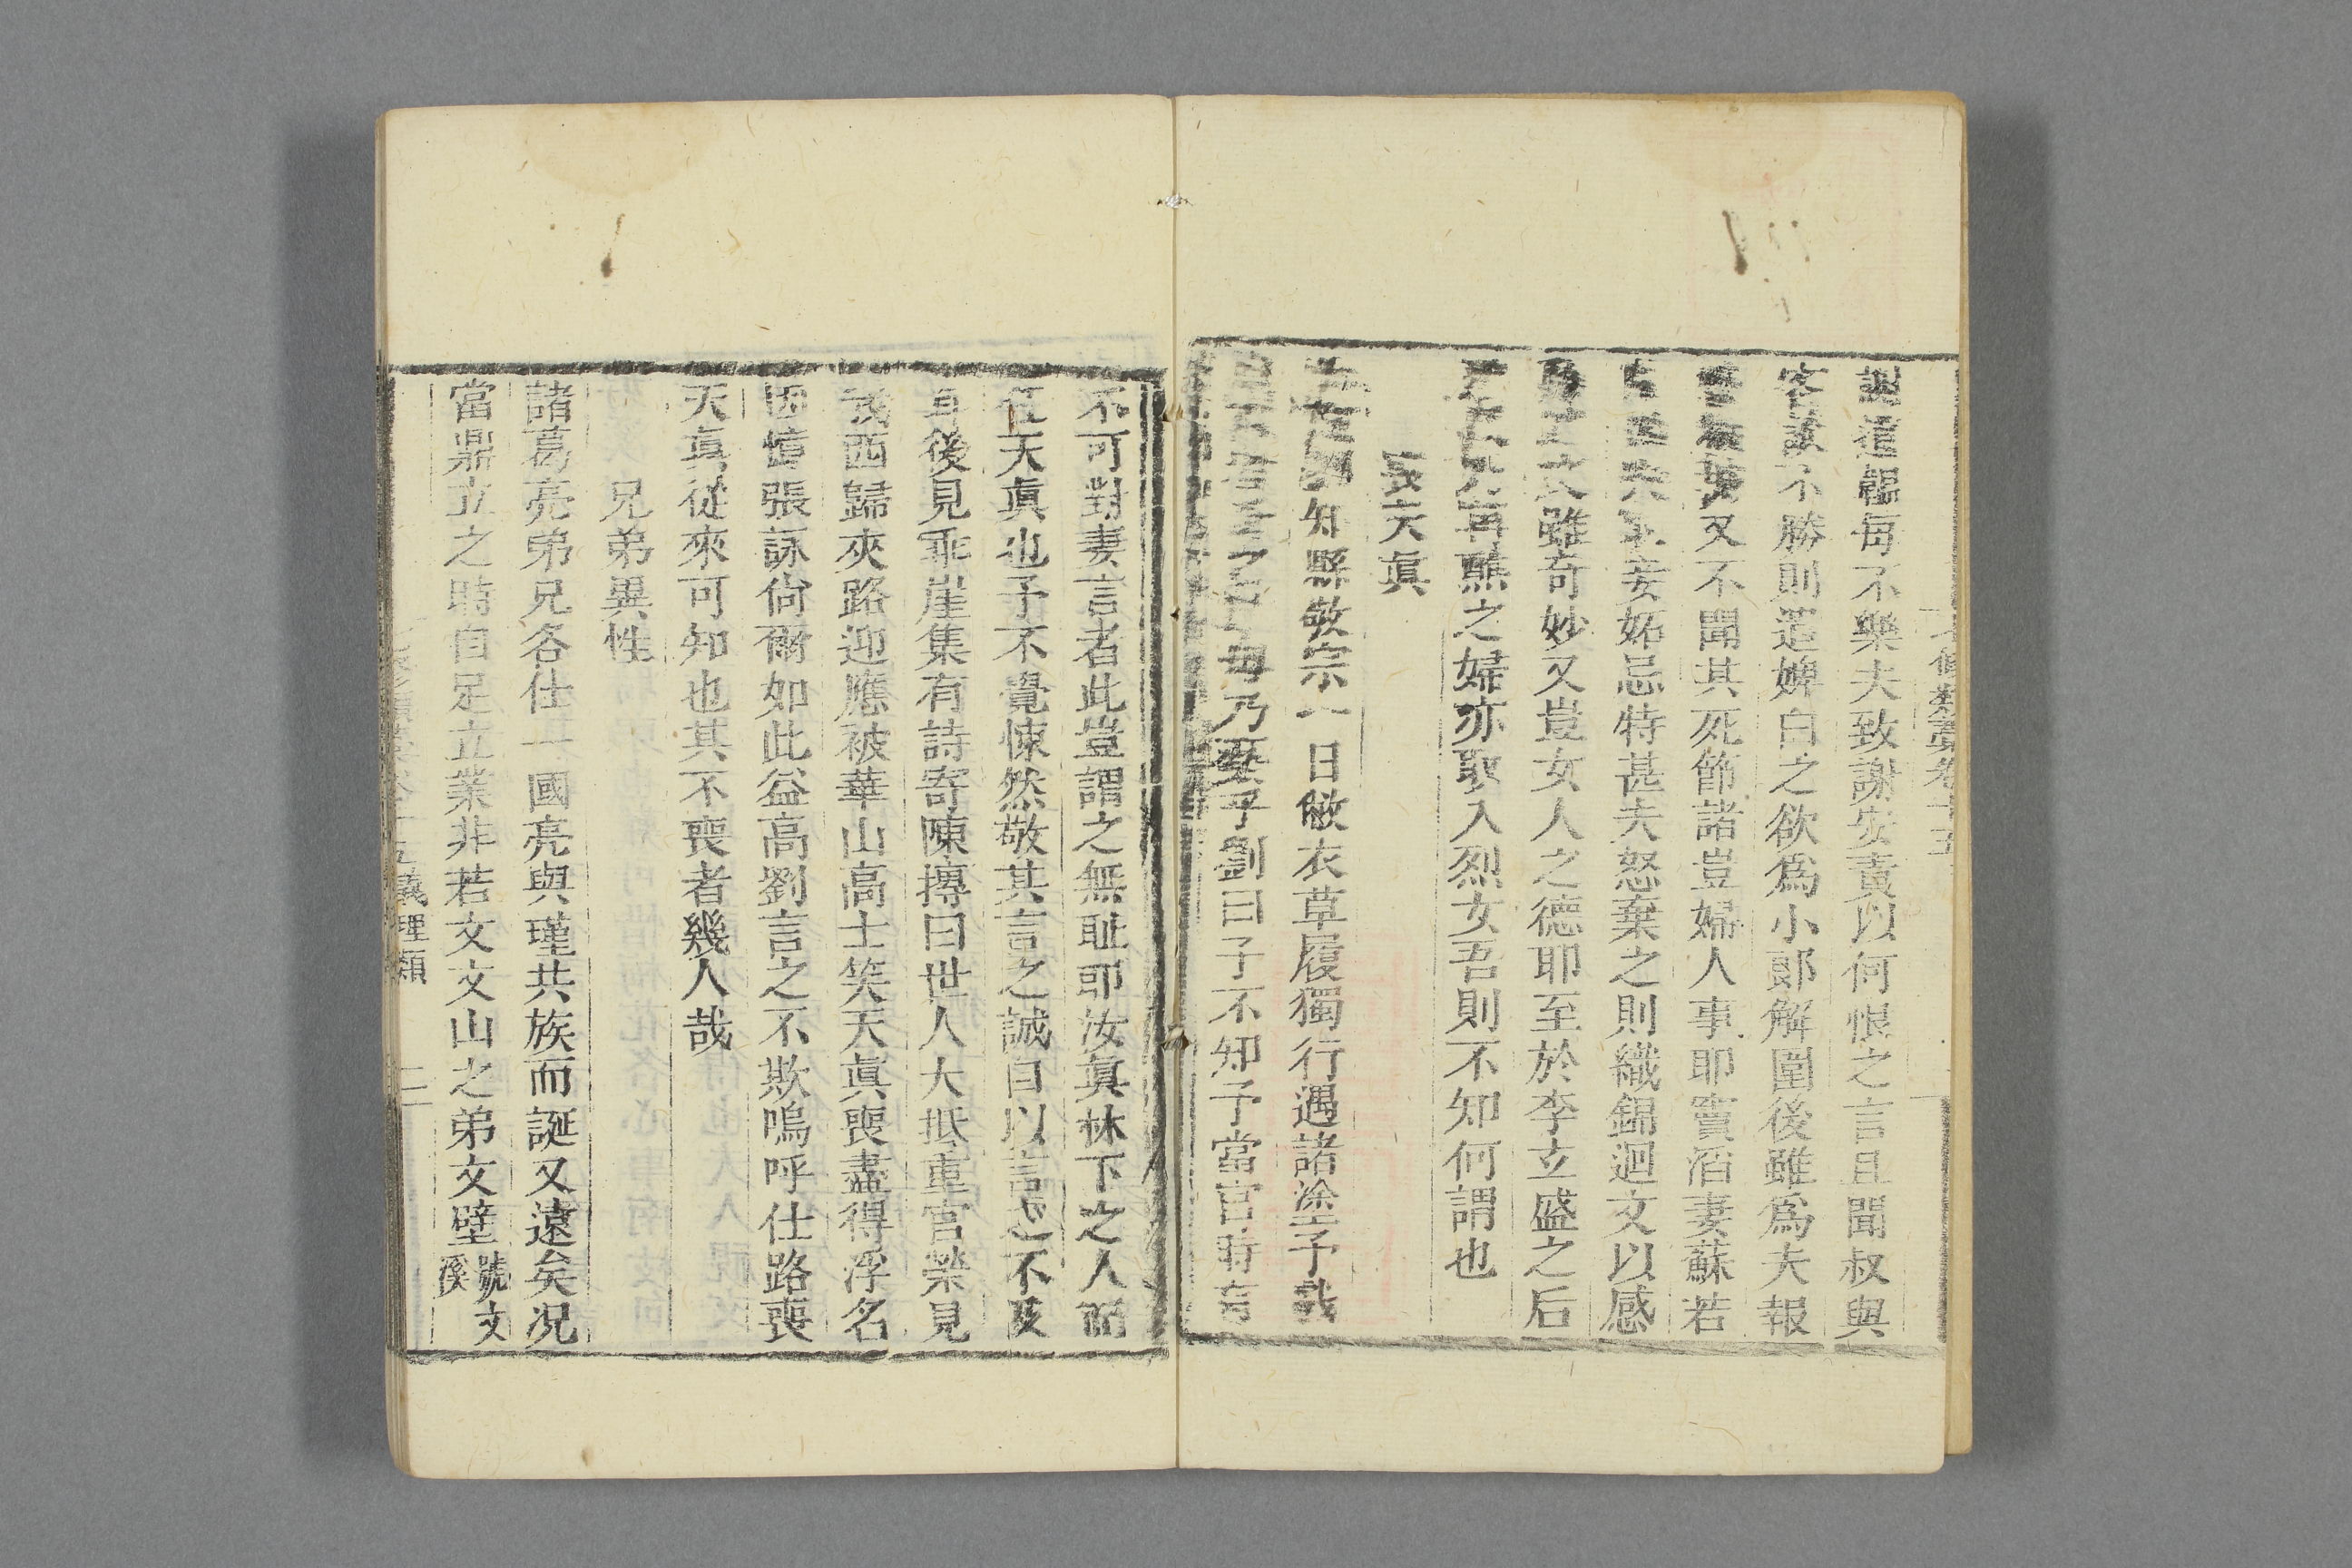 七修類藁卷十五
謝道韞每不樂夫致謝安責以何恨之言且聞叔與
客談不勝則遣婢白之欲爲小郎解圍後雖爲夫報
又不聞其死節諸豈婦人事耶竇滔妻蘇若
妾妬忌特甚夫怒棄之則織錦迴文以感
之文雖奇妙又豈女人之德耶至於李立盛之后
再醮之婦亦取入烈女吾則不知何謂也
喪天眞
知縣敬宗一日敝衣草履獨行遇諸塗予哉
乃取予劉曰子不知予當官時有
不可對妻言者此豈謂之無耻耶汝眞林下之人而
任天眞也予不覺悚然敬其言之誠自以言之不及
耳後見乖崖集有詩寄陳摶曰世人大抵重官榮見
我西歸夾路迎應被華山高士笑天眞喪盡得浮名
因憶張詠尙爾如此益高劉言之不欺嗚呼仕路喪
天眞從來可知也其不喪者幾人哉
兄弟異性
諸葛亮弟兄各仕一國亮與瑾共族而誕又遠矣况
當鼎立之時自足立業非若文文山之弟文璧號文
溪
義理類 二